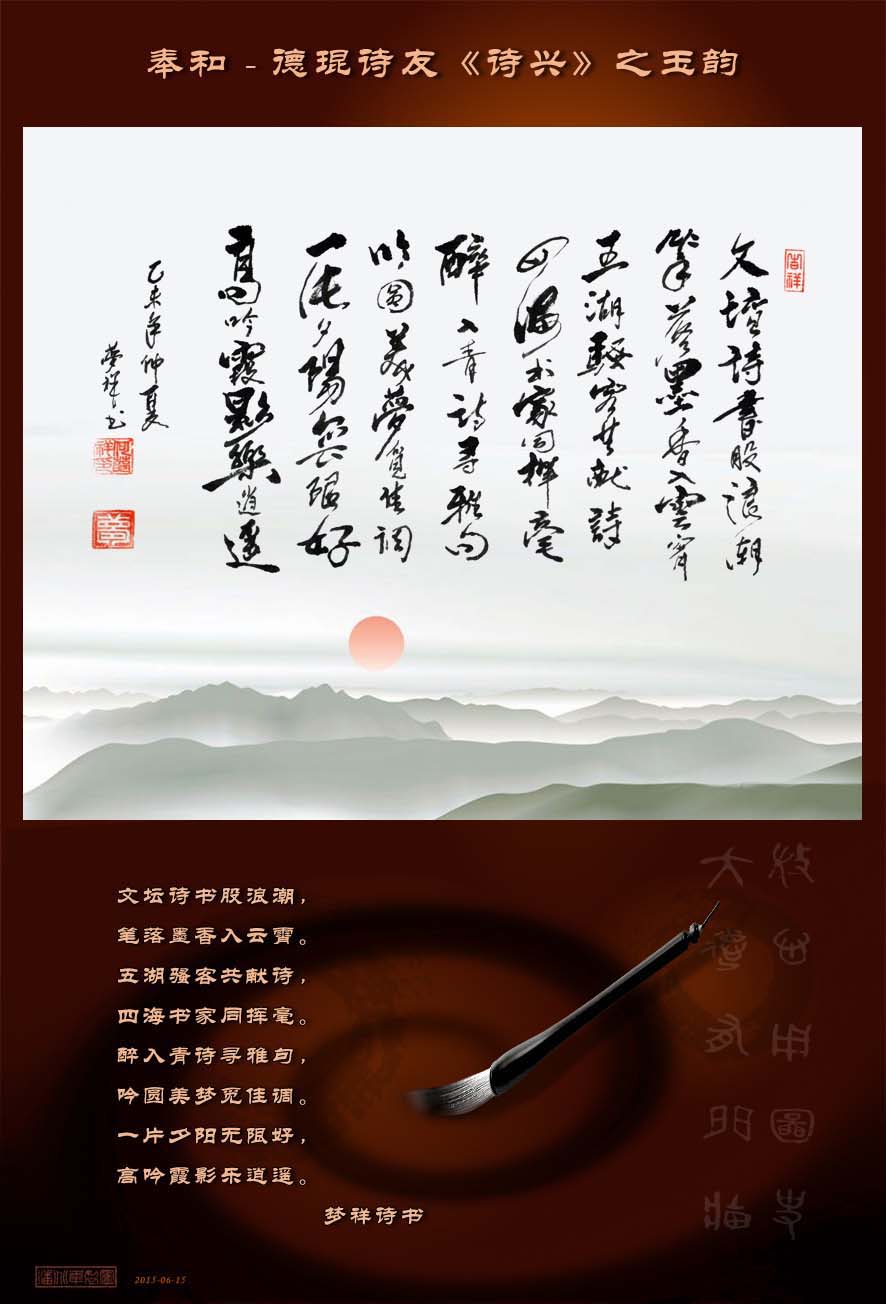 奉和 - 德琨诗友《诗兴》之玉韵
吉祥
文壇詩書股浪潮
筆落墨香入雲霄
五湖騷客共献詩
四海书家同揮毫
醉入青詩尋雅句
吟圆美夢覓佳调
一片夕陽無限好
高吟霞影樂逍遥
乙未年仲夏
夢祥书
文坛诗书股浪潮，
笔落墨香入云霄。
五湖骚客共献诗，
四海书家同挥毫。
醉入青诗寻雅句，
吟圆美梦觅佳调。
一片夕阳无限好，
高吟霞影乐逍遥。
梦祥诗书
2015-06-15